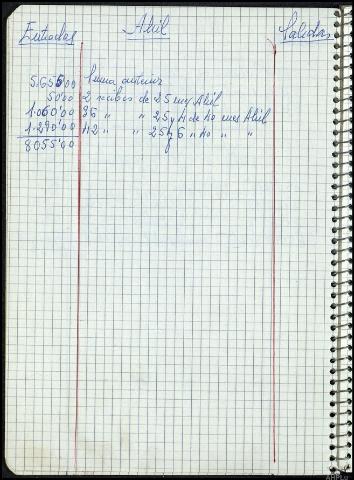 Entradas Abril Salidas
5.655'00 Suma anterior
50'00 2 recibos de 25 mes Abril
1.060'00 36 " " 25 y 4 de 40 mes Abril
1.290'00 42 " " 25 y 6 " 40 " "
8055'00
AHPLu